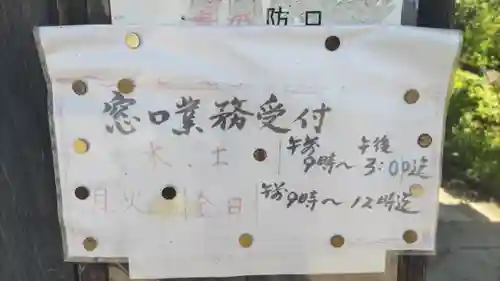 防口
窓口業務受付
木、土 午前9時～午後3:00迄
月火 金日 午前9時～12時迄